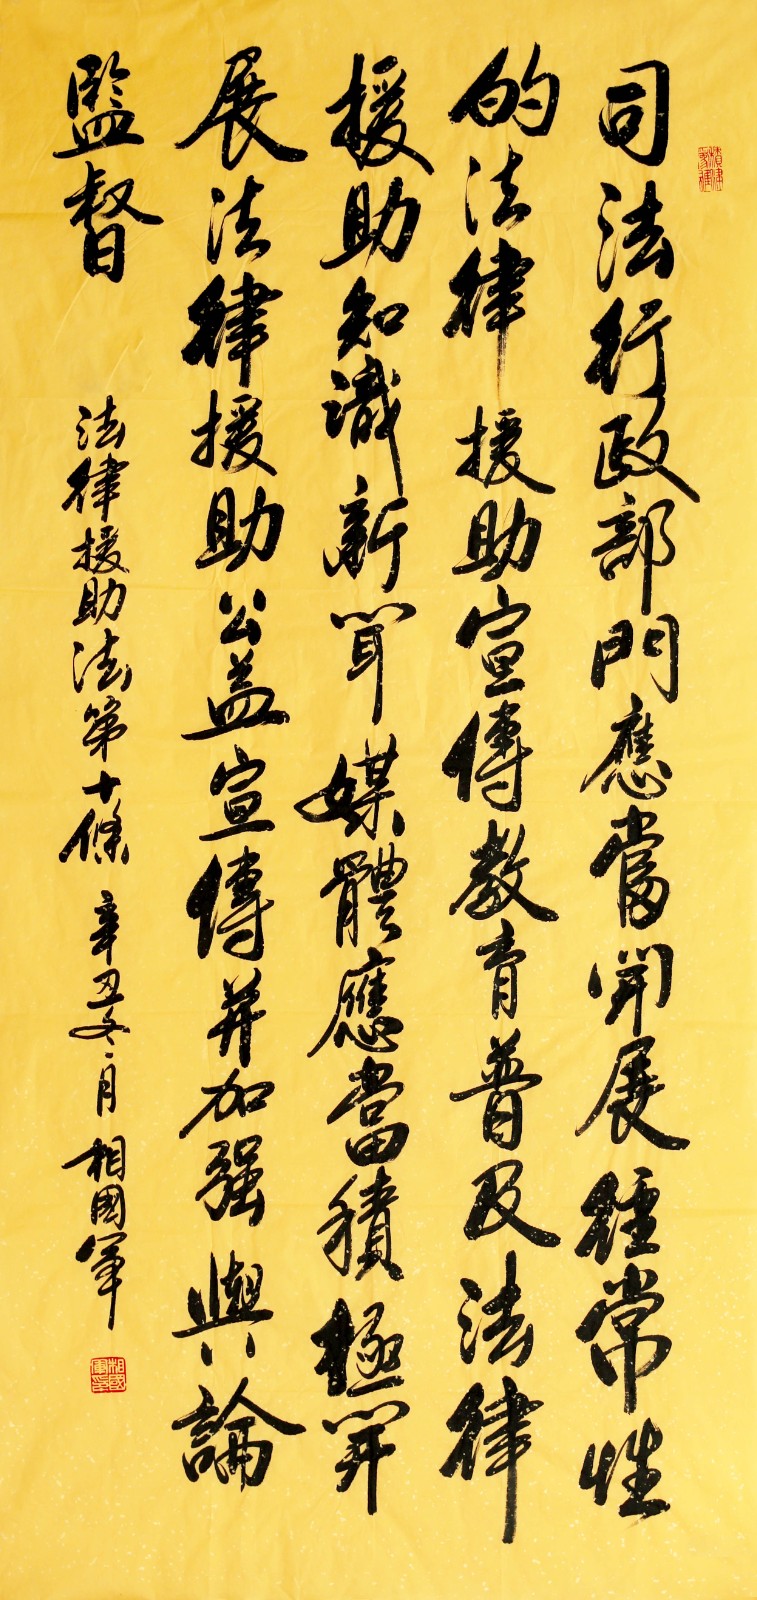 司法行政部門應當開展經常性
的法律援助宣傳教育普及法律
援助知識新聞媒體應當積極開
展法律援助公益宣傳并加强輿論
監督
法律援助法第十條 辛丑冬月 相國軍
相國軍印